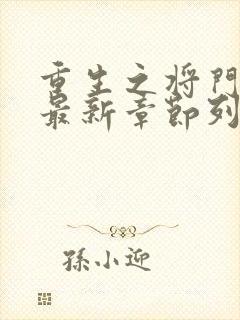 重生之将门
最新章節列
孫小迎